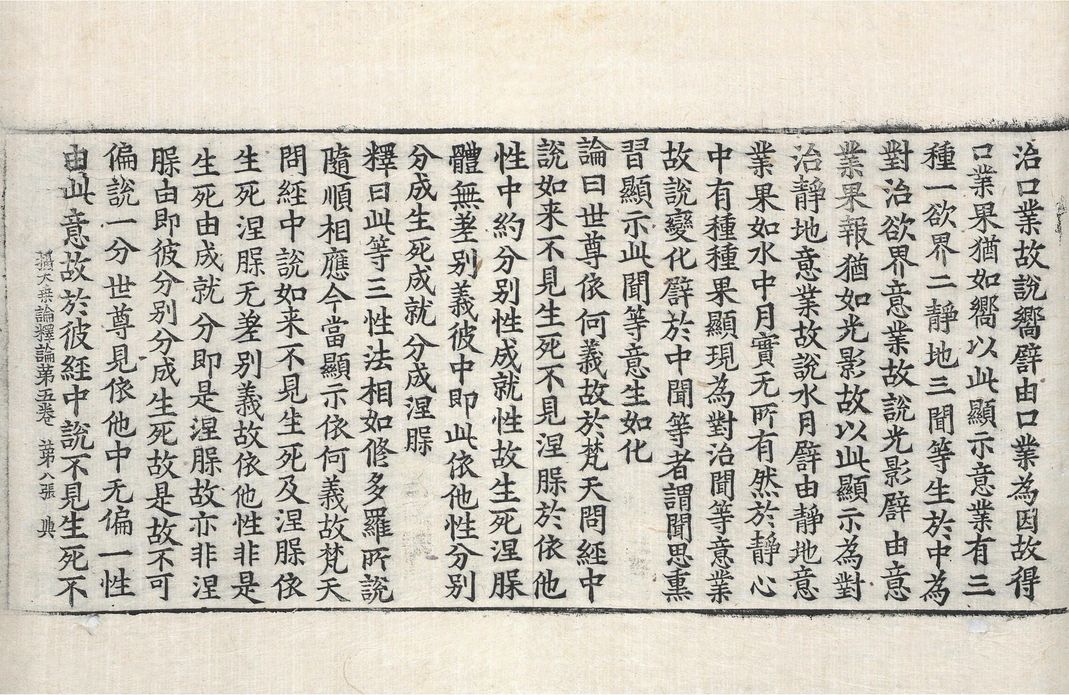 治口業故說嚮譬由口業為因故得
口業果猶如嚮以此顯示意業有三
種一欲界二靜地三聞等生於中為
對治欲界意業故說光影譬由意
業果報猶如光影故以此顯示為對
治靜地意業故說水月譬由靜地意
業果如水中月實无所有然於靜心
中有種種果顯現為對治聞等意業
故說變化譬於中聞等者謂聞思熏
習顯示此聞等意生如化
論曰世尊依何義故於梵天問經中
說如来不見生死不見涅槃於依他
性中約分別性成就性故生死涅槃
體無差別義彼中即此依他性分別
分成生死成就分成涅槃
釋曰此等三性法相如修多羅所說
隨順相應今當顯示依何義故梵天
問經中說如来不見生死及涅槃依
生死涅槃无差別義故依他性非是
生死由成就分即是涅槃故亦非涅
槃由即彼分別分成生死故是故不可
偏說一分世尊見依他中无偏一性
由此意故於彼經中說不見生死不
攝大乘論釋論第五卷 第八張 典